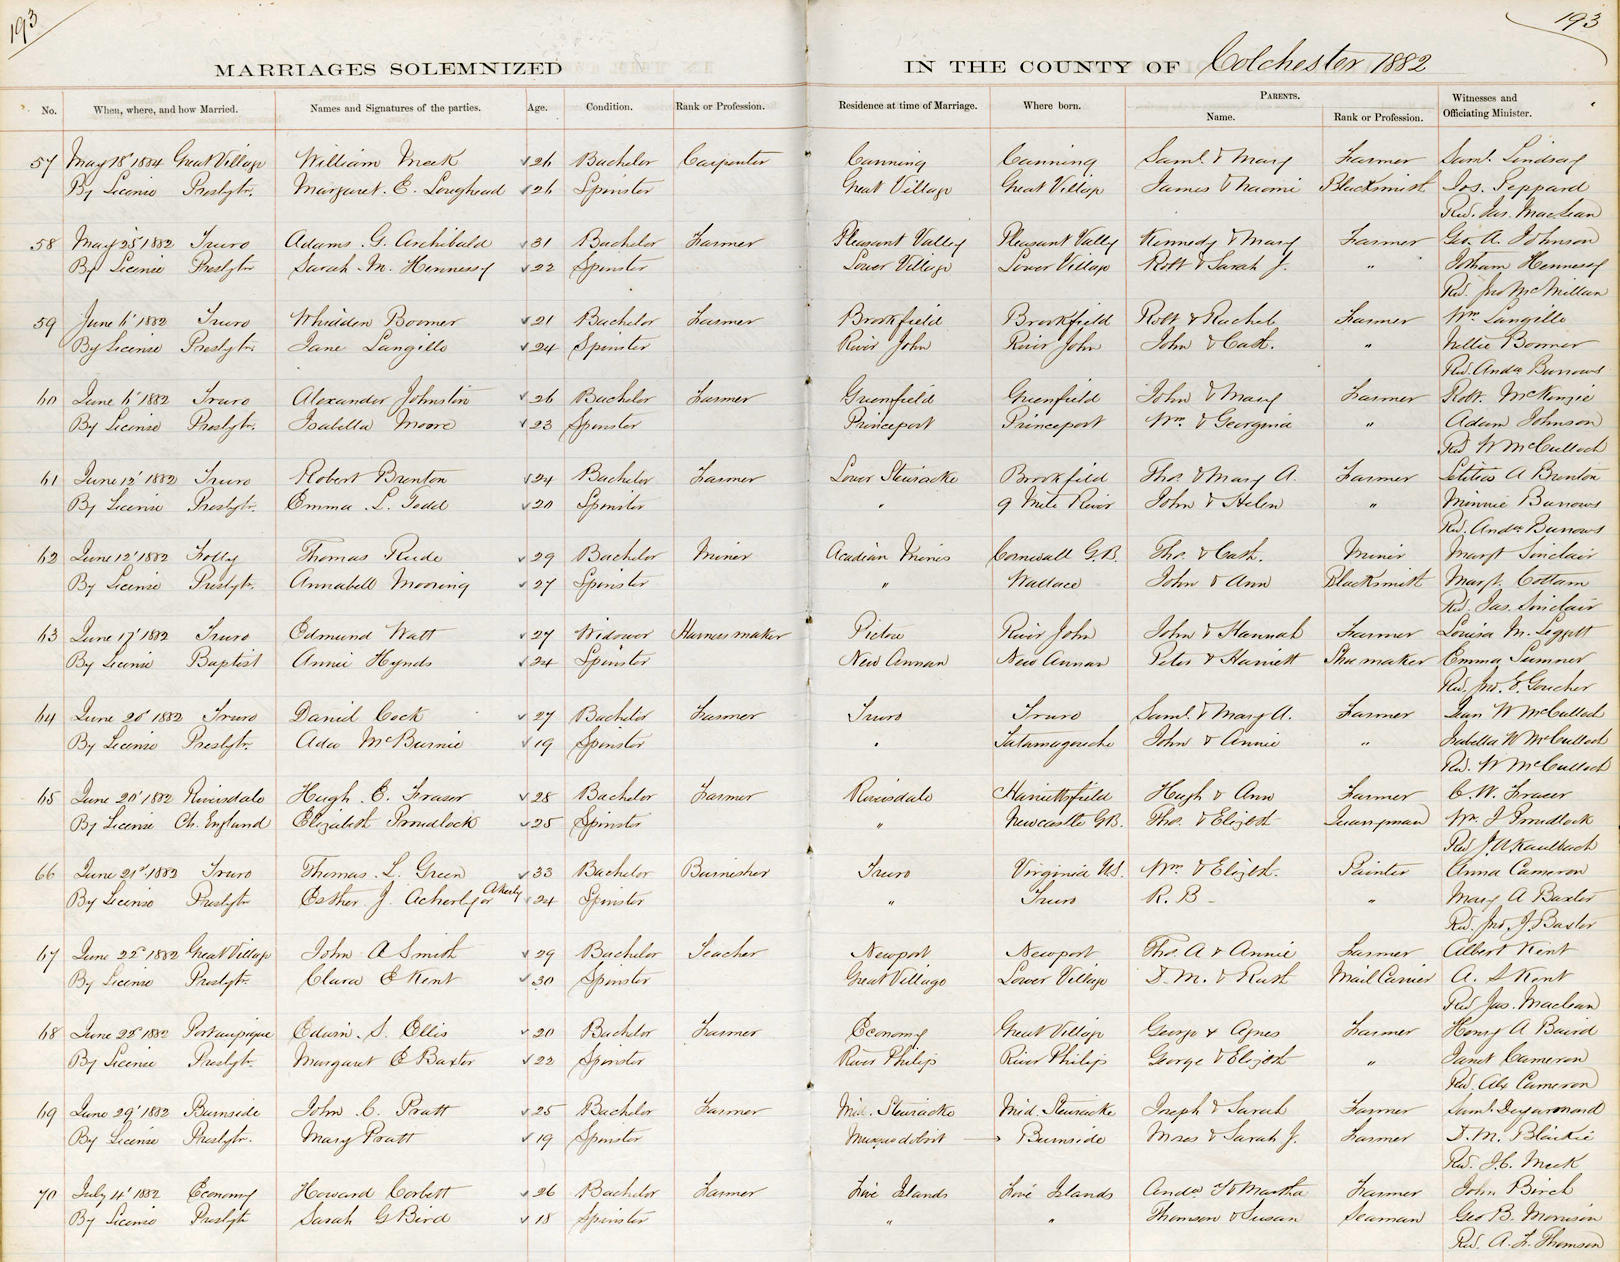 193
193
MARRIAGES SOLEMNIZED IN THE COUNTY OF Colchester 1882
No. When, where, and how Married. Names and Signatures of the parties. Age. Condition. Rank or Profession. Residence at time of Marriage. Where born. PARENTS. Name. Rank or Profession. Witnesses and Officiating Minister.
57 May 18' 1884 Great Village William Meek 26 Bachelor Carpenter Canning Canning Saml. & Mary Farmer Saml. Lindsay
By License Presbytr. Margaret. E. Loughead 26 Spinster Great Village Great Village James & Naomi Blacksmith Jos. Peppard
Rev. Jas. MacLean
58 May 25' 1882 Truro Adams. G. Archibald 31 Bachelor Farmer Pleasant Valley Pleasant Vally Kennedy & Mary Farmer Geo. A. Johnson
By License Presbytr Sarah. M. Hennessy 22 Spinster Lower Village Lower Village Robt & Sarah J. " Jotham Hennessy
Rev. Jno McMillan
59 June 6' 1882 Truro Whidden Boomer 21 Bachelor Farmer Brookfield Brookfield Robt & Rachel Farmer Wm Langille
By License Presbytr. Jane Langille 24 Spinster River John River John John & Cath. " Nellie Boomer
Rev. Andw Burrows
60 June 6' 1882 Truro Alexander Johnston 26 Bachelor Farmer Greenfield Greenfield John & Mary Farmer Robt. McKenzie
By License Presbytr. Isabella Moore 23 Spinster Princeport Princeport Wm. & Georgina " Adam Johnson
Rev W McCulloch
61 June 12' 1882 Truro Robert Brenton 24 Bachelor Farmer Lower Stewiacke Brookfield Thos. & Mary A. Farmer Letitia A Brenton
By License Presbytr. Emma. L. Todd 20 Spinster " 9 Mile River John & Helen " Minnie Burrows
Rev. Andw Burrows
62 June 12' 1882 Folly Thomas Rude 29 Bachelor Miner Acadian Mines Cornwall G.B. Tho. & Cath. Miner Margt Sinclair
By License Presbytr. Annabell Mooring 27 Spinster " Wallace John & Ann Blacksmith Margt. Cottam
Rev. Jas. Sinclair
63 June 17' 1882 Truro Edmund Watt 27 Widower Harness maker Pictou River John John & Hannah Farmer Louisa M. Leggett
By License Baptist Annie Hynds 24 Spinster New Annan New Annan Peter & Harriett Shoemaker Emma Sumner
Rev. Jno. E. Goucher
64 June 20' 1882 Truro David Cock 27 Bachelor Farmer Truro Truro Saml. & Mary A. Farmer Jean W McCulloch
By License Presbytr. Ada McBurnie 19 Spinster " Tatamagouche John & Annie " Isabella W McCulloch
Rev. W McCulloch
65 June 20' 1882 Riversdale Hugh. E. Fraser 28 Bachelor Farmer Riversdale Harrietsfield Hugh & Ann Farmer C. W. Fraser
By License Ch. England Elizabeth Prudlock 25 Spinster " Newcastle G.B. Tho. & Elizbth Quarryman Wm. J Prudlock
Rev J. A Kaulbach
66 June 21st 1882 Truro Thomas. L. Green 33 Bachelor Burnisher Truro Virginia U.S. Wm & Elizbth. Painter Anna Cameron
By License Presbytr Esther. J. Acherly or Akerly 24 Spinster " Truro R. B - " Mary A Baxter
Rev. Jno J. Baxter
67 June 22' 1882 Great Village John A Smith 29 Bachelor Teacher Newport Newport Tho. A & Annie Farmer Albert Kent
By License Presbytr. Clara E Kent 30 Spinster Great Village Lower Village D. M. & Ruth Mail Carrier A. S Kent
Rev Jas. Maclean
68 June 28' 1882 Portaupique Edwin. S. Ellis 20 Bachelor Farmer Economy Great Village George & Agnes Farmer Henry A Baird
By License Presbytr. Margaret E Baxter 22 Spinster River Philip River Philip George & Elizbth " Janet Cameron
Rev. Alx Cameron
69 June 29' 1882 Burnside John. C. Pratt 25 Bachelor Farmer Mid. Stewiacke Mid. Stewiacke Joseph & Sarah Farmer Saml. Deyarmond
By License Presbytr. Mary Pratt 19 Spinster Musquodobit Burnside Moses & Sarah J. Farmer D. M. Blaikie
Rev. J. C. Meek
70 July 4' 1882 Economy Howard Corbett 26 Bachelor Farmer Five Islands Five Islands Andw & Martha Farmer John Birch
By License Presbytr Sarah G Bird 18 Spinster " " Thomson & Susan Seaman Geo B. Morrison
Rev. A. F. Thomson